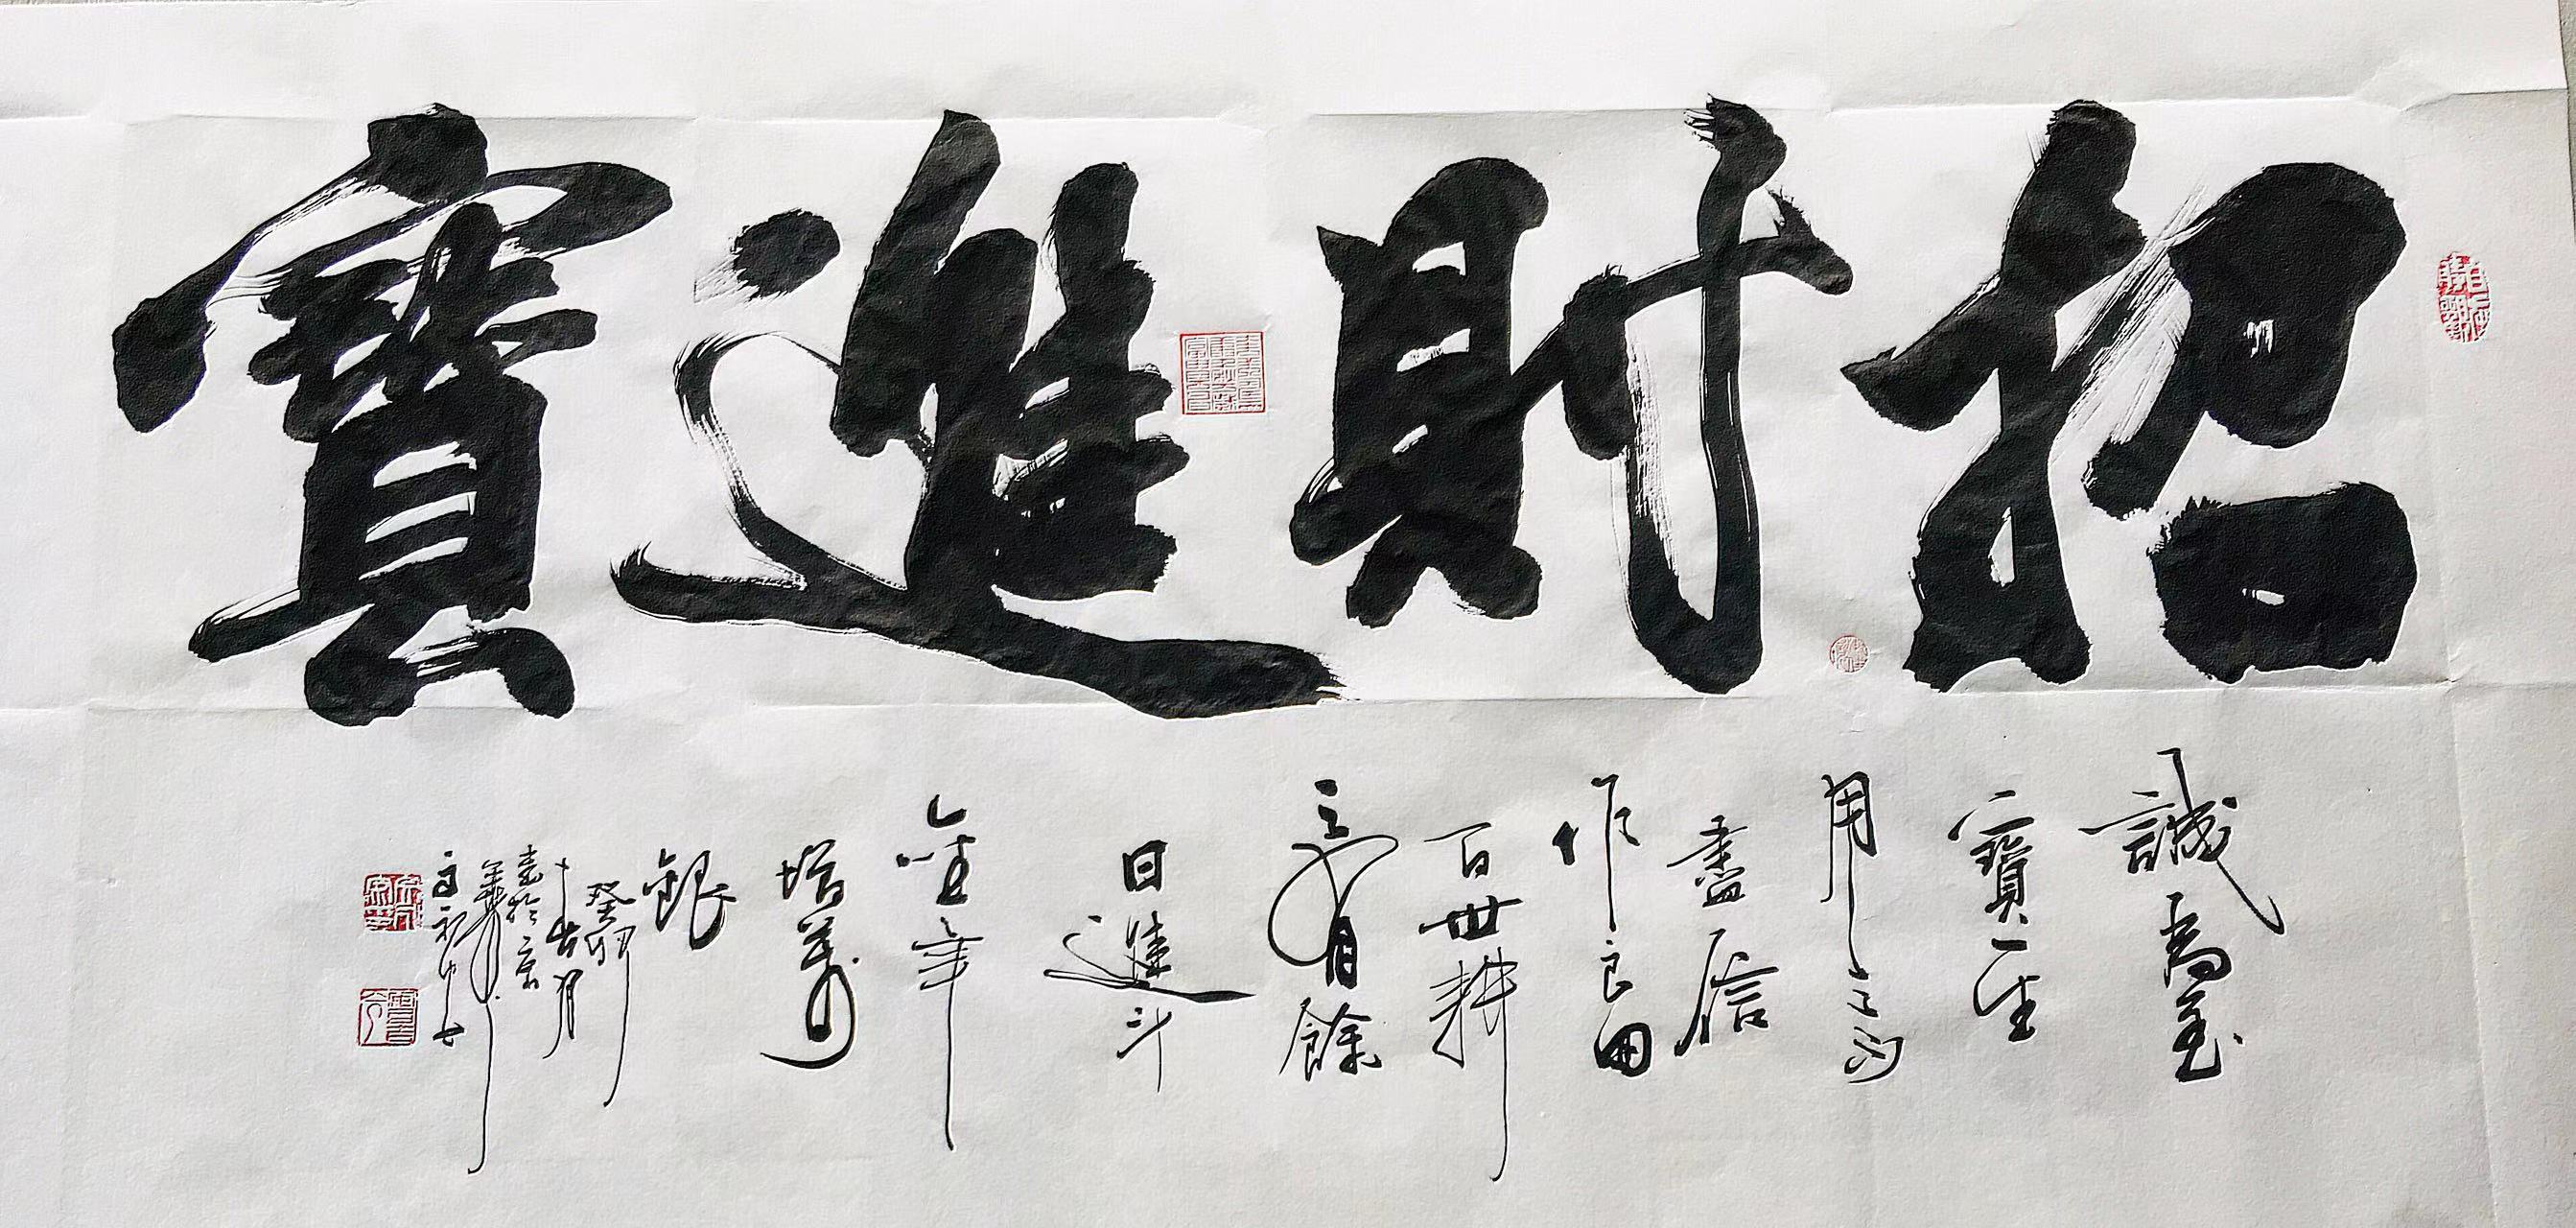 招財進寶
誠為至
寶一生
用之不
盡信
作良田
百世耕
之有餘
日進斗
金年
增萬
銀
癸卯
月
書於京